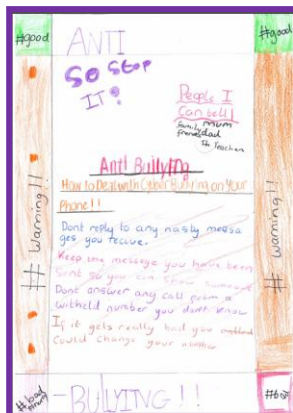 #good
ANTI
#good
SO STOP
IT?
People I
can tell!
family mum
friends dad
Teacher
Anti Bullying
How to Deal with Cyber Bullying on Your
Phone!!
Dont reply to any nasty messa
ges you recive.
Keep the message you have been
Sent so you can show someone
Dont answer any call from a
witheld number you dont know
If it gets really bad you
Could change your number
## Warning!!
# Warning!!
#bad
-BULLYING!!